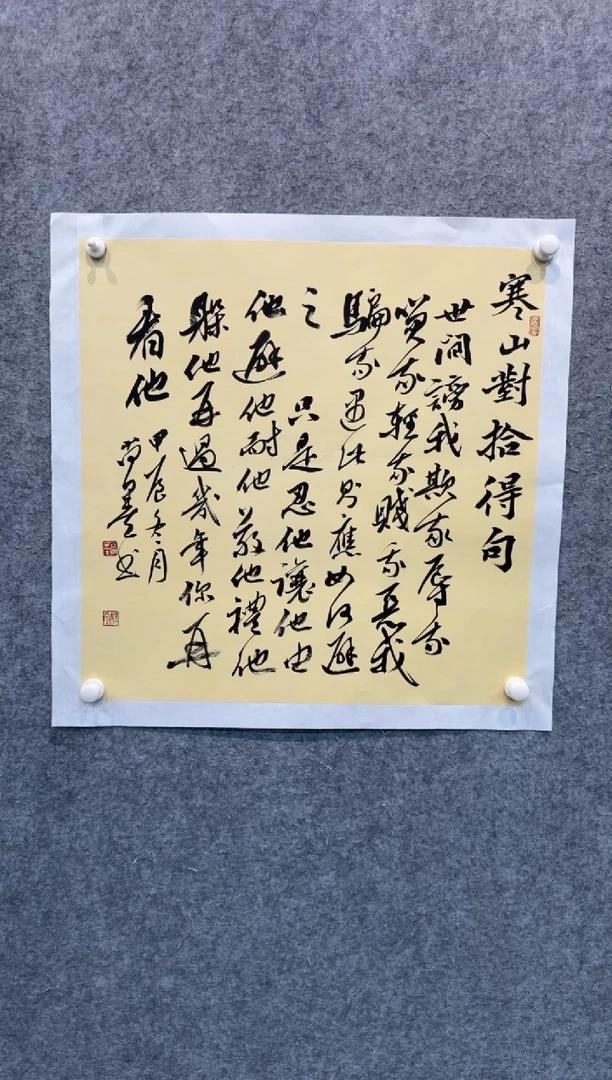 寒山對拾得句
世間謗我欺我辱我
笑我輕我賤我惡我
騙我遇此則應如何避
之 只是忍他讓他由
他避他耐他敬他禮他
躲他再過幾年你再
看他
甲辰冬月
书